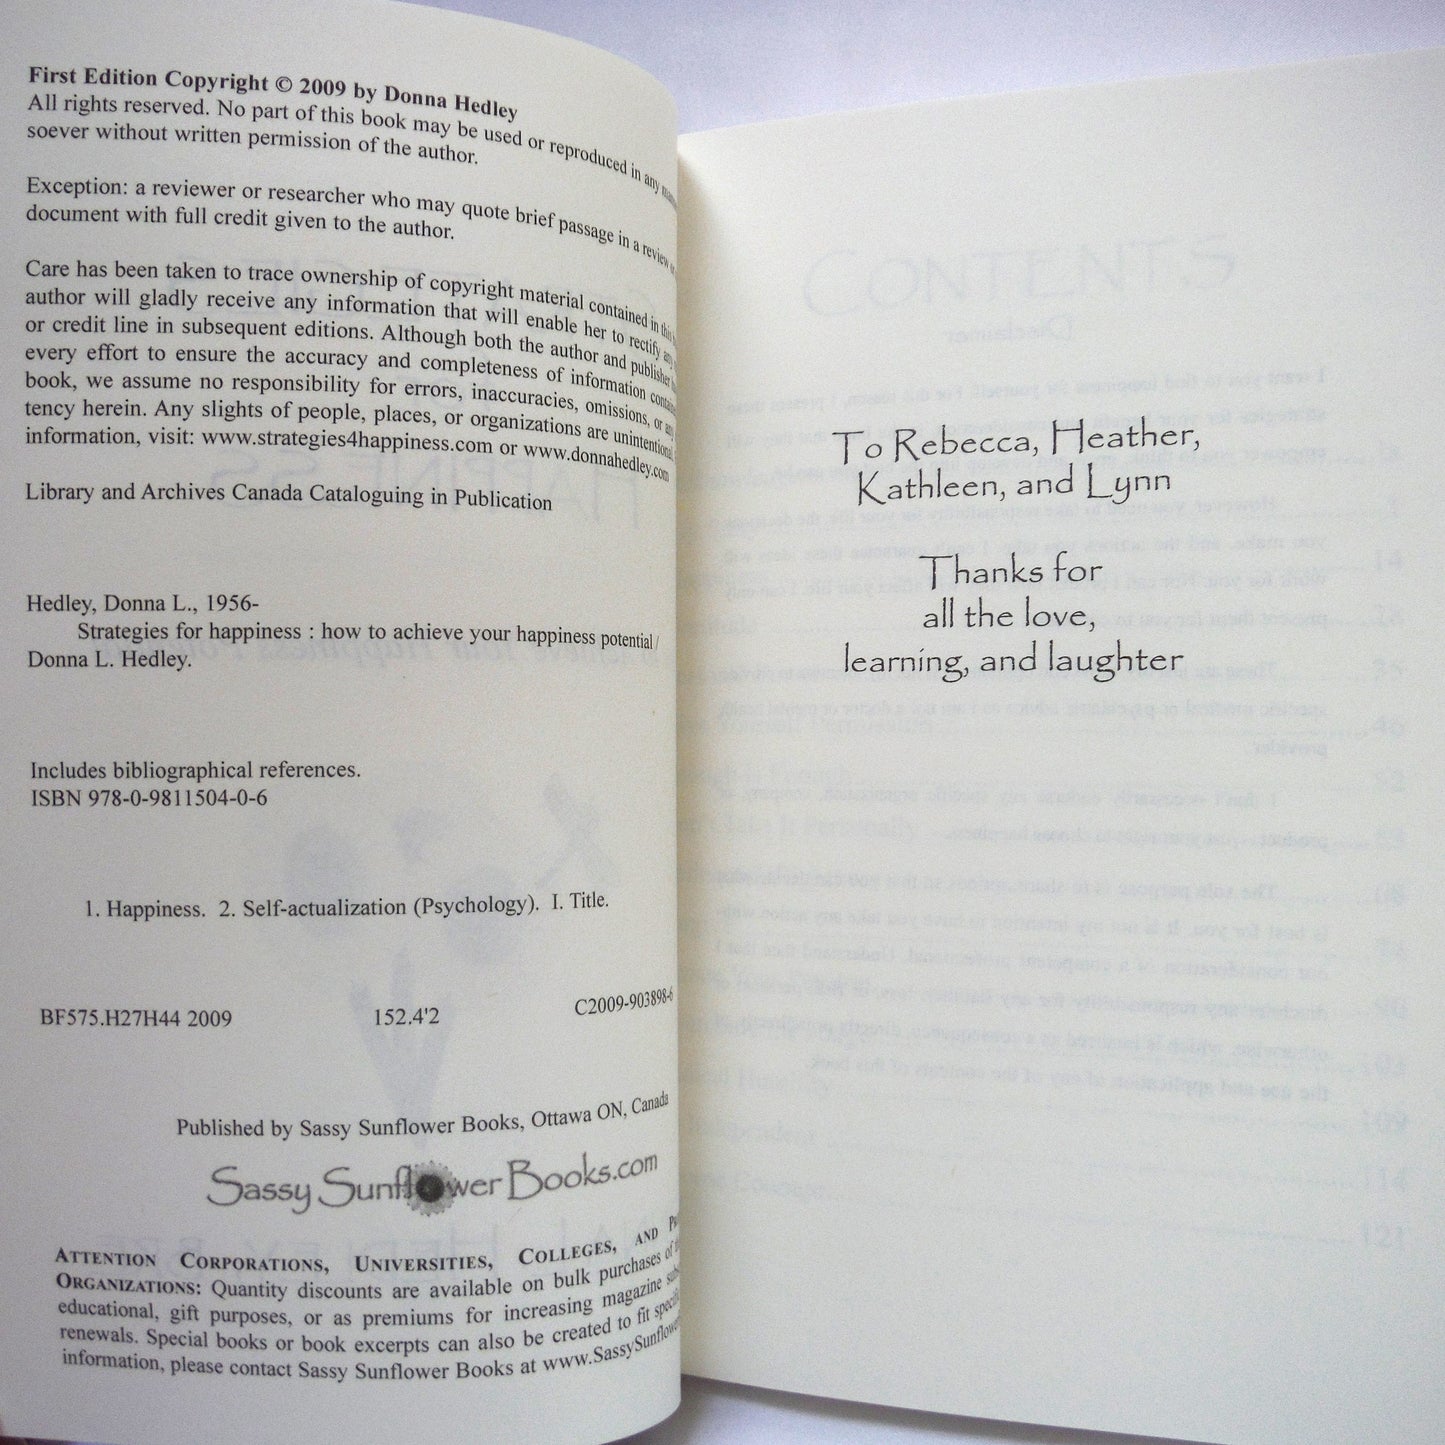 First Edition Copyright © 2009 by Donna Hedley
All rights reserved. No part of this book may be used or reproduced in any
soever without written permission of the author.
Exception: a reviewer or researcher who may quote brief passage in a review
document with full credit given to the author.
Care has been taken to trace ownership of copyright material contained in this
author will gladly receive any information that will enable her to rectify any
or credit line in subsequent editions. Although both the author and publisher
every effort to ensure the accuracy and completeness of information
book, we assume no responsibility for errors, inaccuracies, omissions, or any
tency herein. Any slights of people, places, or organizations are unintentional.
information, visit: www.strategies4happiness.com or www.donnahedley.com
Library and Archives Canada Cataloguing in Publication
Hedley, Donna L., 1956-
Strategies for happiness : how to achieve your happiness potential /
Donna L. Hedley.
Includes bibliographical references.
ISBN 978-0-9811504-0-6
1. Happiness. 2. Self-actualization (Psychology). I. Title.
BF575.H27H44 2009 152.4'2 C2009-903898-6
Published by Sassy Sunflower Books, Ottawa ON, Canada
Sassy Sunflower Books.com
ATTENTION CORPORATIONS, UNIVERSITIES, COLLEGES, AND
ORGANIZATIONS: Quantity discounts are available on bulk purchases of
educational, gift purposes, or as premiums for increasing magazine
renewals. Special books or book excerpts can also be created to fit
information, please contact Sassy Sunflower Books at
To Rebecca, Heather,
Kathleen, and Lynn
Thanks for
all the love,
learning, and laughter